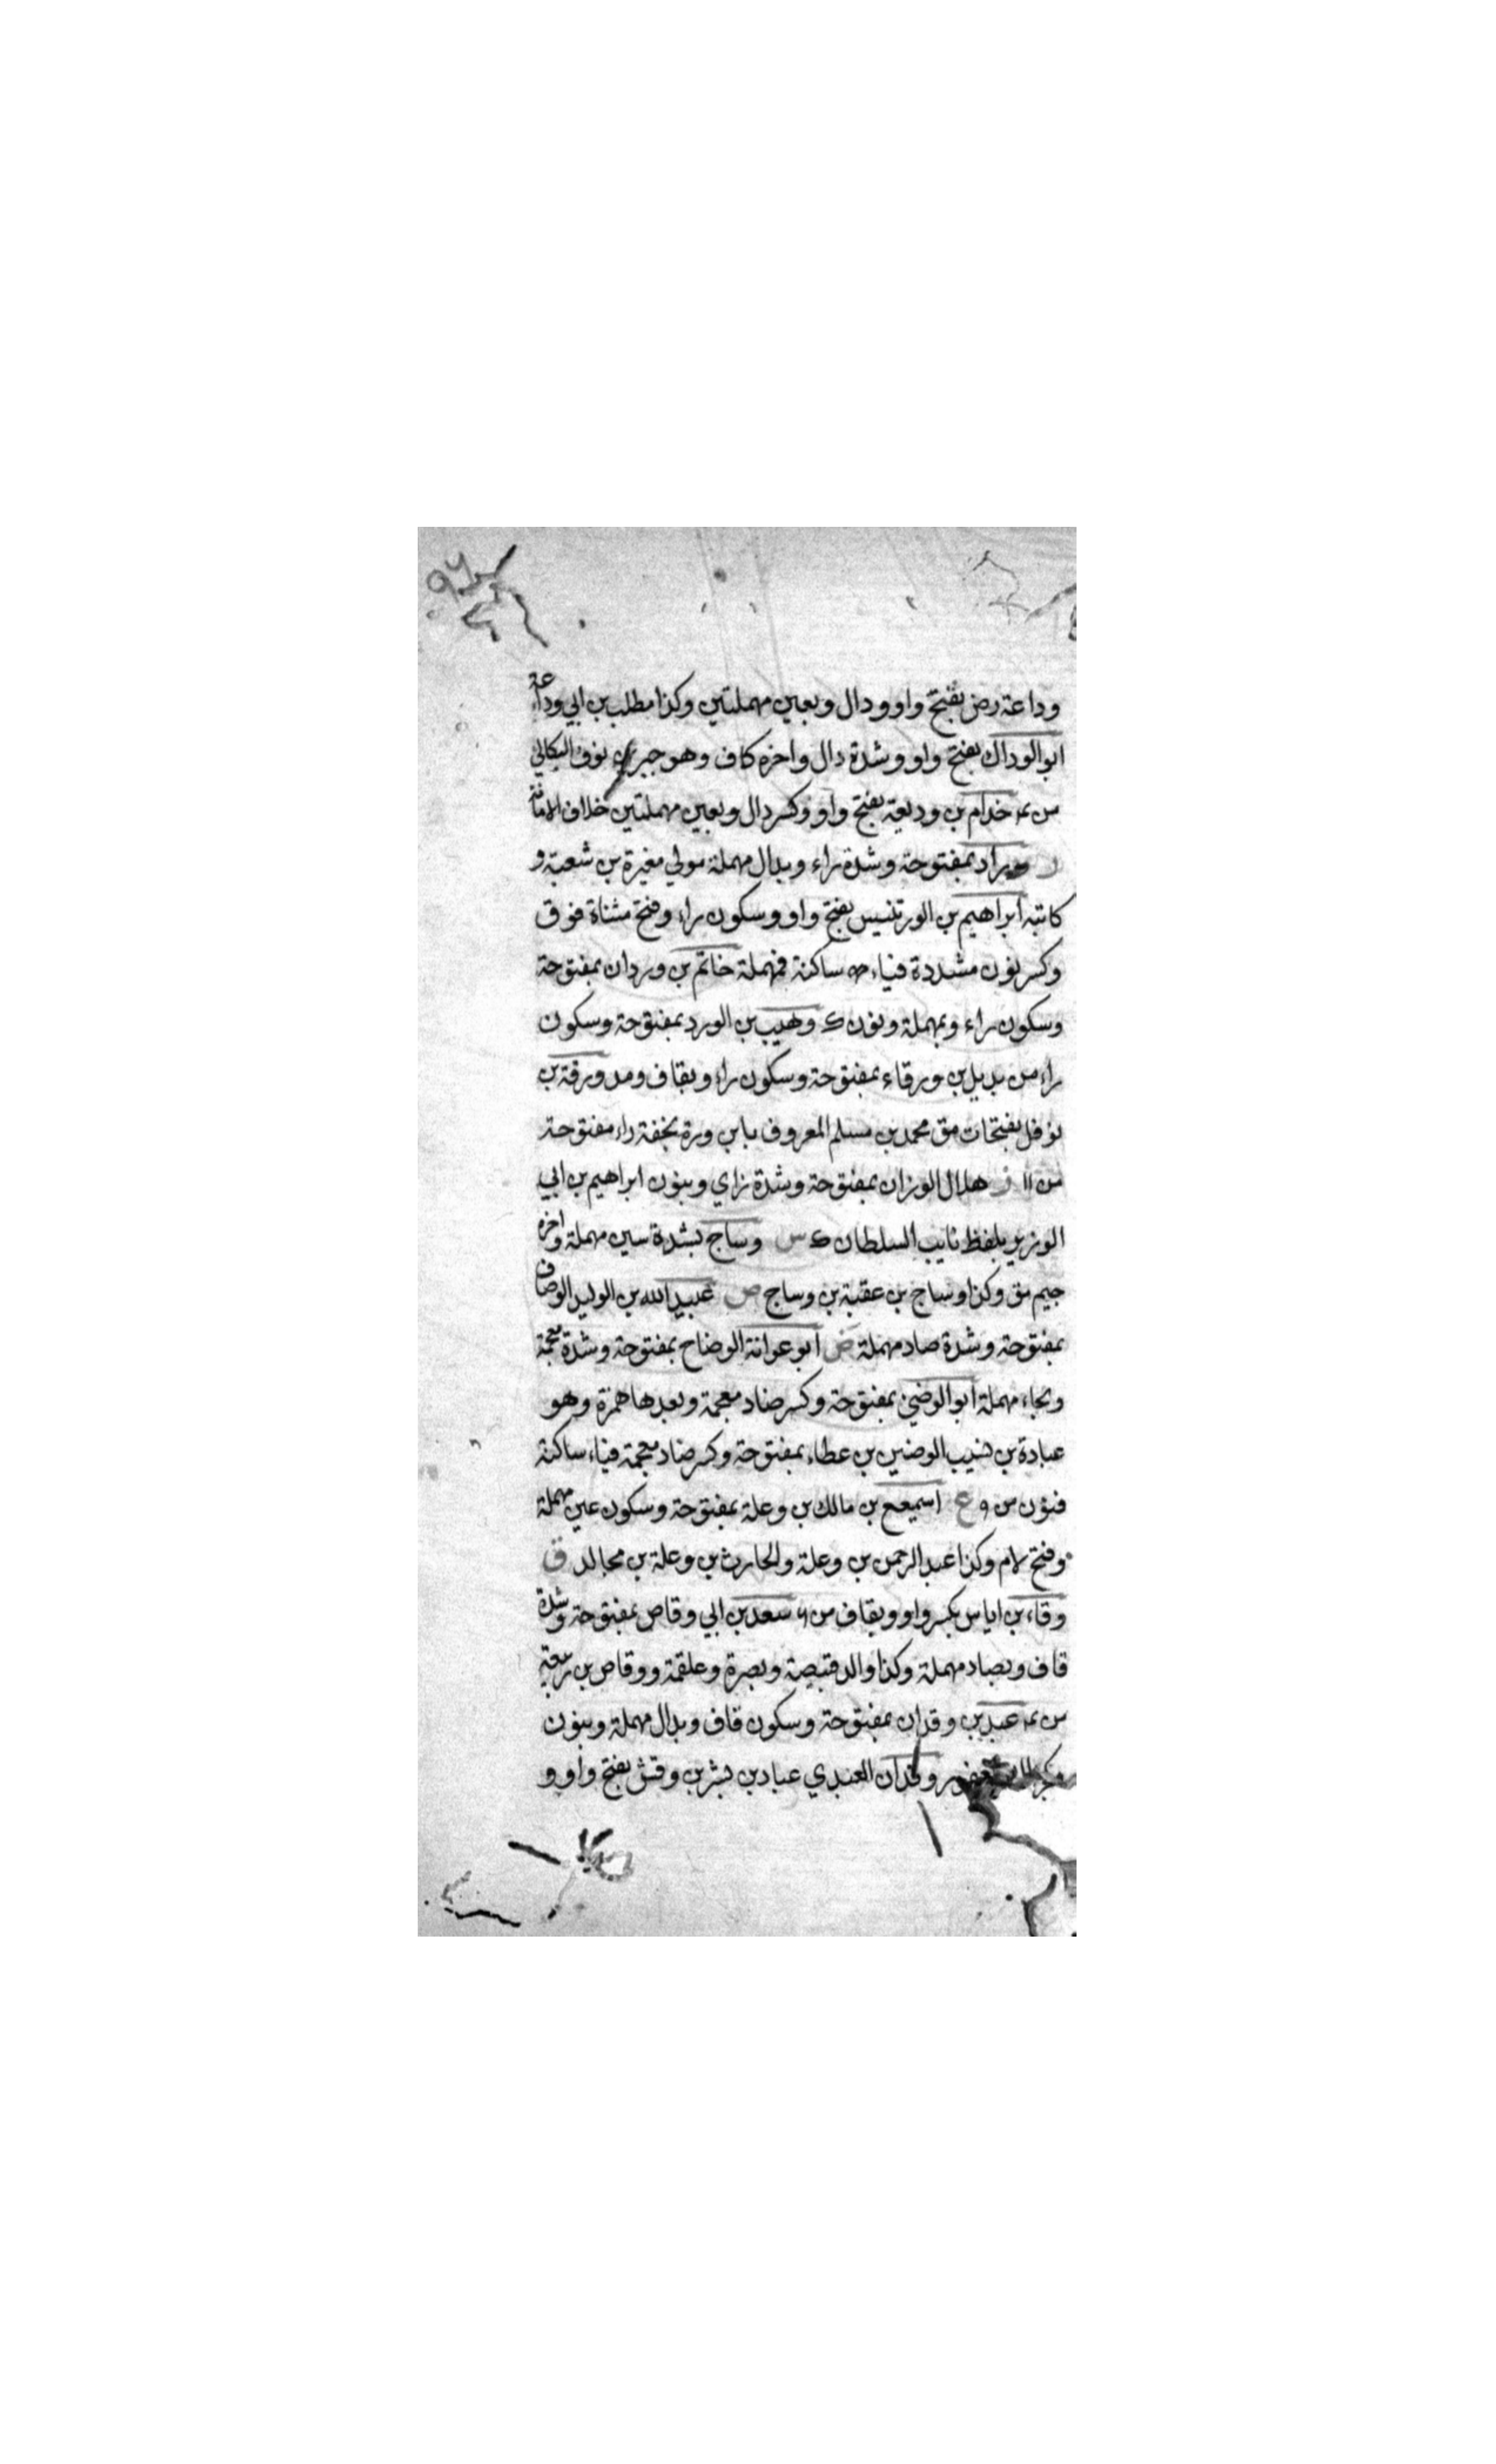 ٩٦
وداعة رض بفتح واو ودال وبعين مهملتين وكذا مطلب بن ابي وداعة
ابو الوداك بفتح واو وشدة دال واخره كاف وهو جبر نوف البكالي
من خدام بن وديعة بفتح واو وكسر دال وبعين مهملتين خلاف الامانة
ر وراد بمفتوحة وشدة راء وبدال مهملة مولي مغيرة بن شعبة و
كاتبه ابراهيم بن الورتنيس بفتح واو وسكون راء وفتح مثناة فوق
وكسر نون مشددة فياء ساكنة فمهملة خاتم بن وردان بمفتوحة
وسكون راء وبمهملة ونون ك وهيب بن الورد بمفتوحة وسكون
راء من بديل بن ورقاء بمفتوحة وسكون راء وبقاف ومد ورقة بن
نوفل بفتحات مق محمد بن مسلم المعروف بابن ورة بخفة راء مفتوحة
من ١١ ز هلال الوزان بمفتوحة وبشدة زاي وبنون ابراهيم بن ابي
الوزير بلفظ نايب السلطان ك س وساج بشدة سين مهملة واخره
جيم مق وكذا وساج بن عقبة بن وساج ص عبيد الله بن الوليد الوصاف
بمفتوحة وشدة صاد مهملة ض ابو عوانة الوضاح بمفتوحة وشدة معجمة
وبحاء مهملة ابو الوضئ بمفتوحة وكسر ضاد معجمة وبعدها همزة وهو
عبادة بن هنيب الوضين بن عطاء بمفتوحة وكسر ضاد معجمة فياء ساكنة
فنون من ٩ ع اسميعع بن مالك بن وعلة بمفتوحة وسكون عين مهملة
وفتح لام وكذا عبد الرحمن بن وعلة والحارث بن وعلة بن مجالد ق
وقاء بن اياس بكسر واو وبقاف من ٤ سعد بن ابي وقاص بمفتوحة وشدة
قاف وبصاد مهملة وكذا والد قبيصة وبصرة وعلقمة ووقاص بن ربيعة
من عبد بن وقدان بمفتوحة وسكون قاف وبدال مهملة وبنون
وقدان العبدي عباد بن بشر بن وقش بفتح واو و